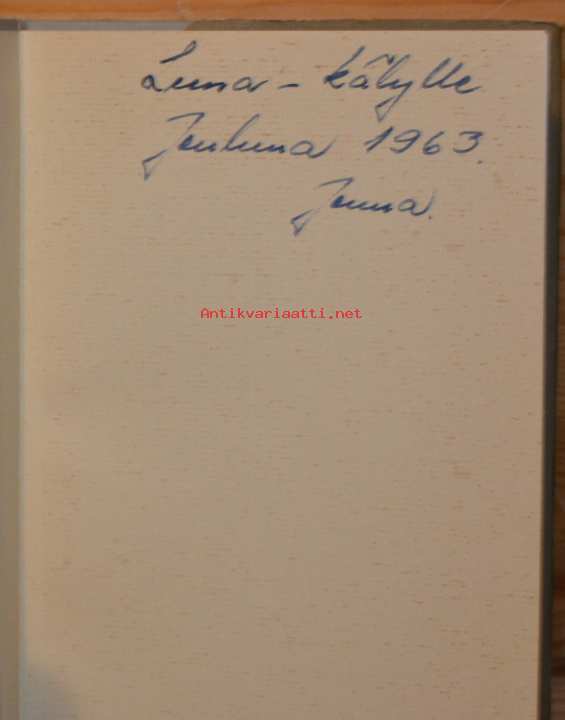 Leena – kälylle
Jouluna 1963.
Jenna.
Antikvariaatti.net